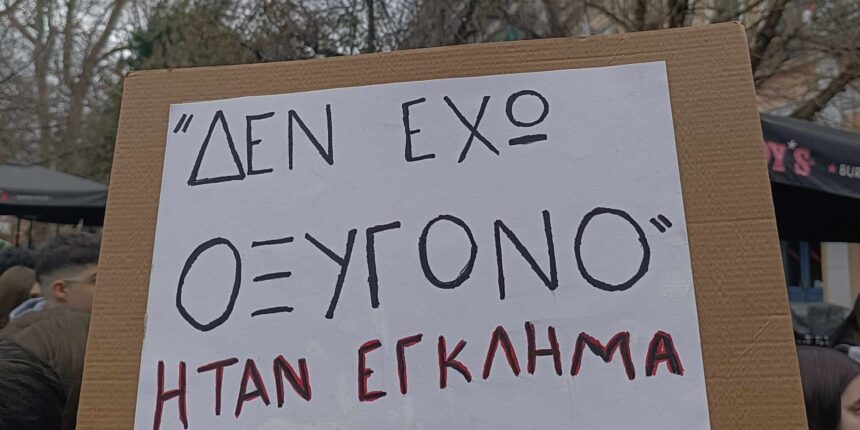 "ΔΕΝ ΕΧΩ
ΟΞΥΓΟΝΟ"
ΗΤΑΝ ΕΓΚΛΗΜΑ